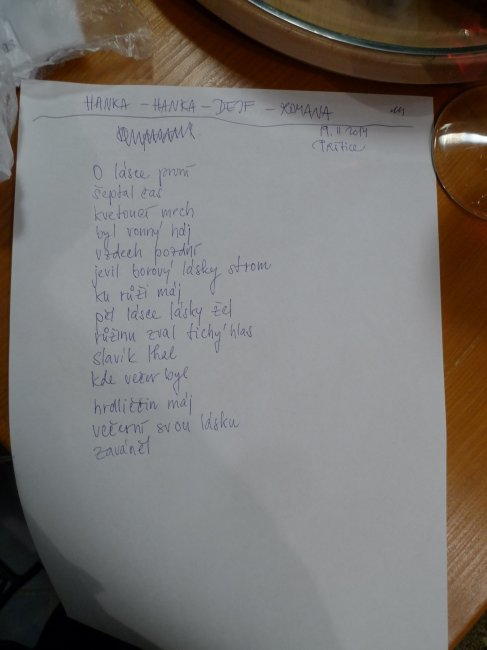 HANKA - HANKA - DEJF - ROMANA
19. 11. 2014
O lásce první
šeptal čas
kvetoucí mech
byl vonný háj
vzdech pozdní
jevil borový lásky strom
ku růži máj
pěl lásce lásky žel
růžinu zval tichý hlas
slavík lhal
kde večer byl
hrdliččin máj
večerní svou lásku
zaváněl